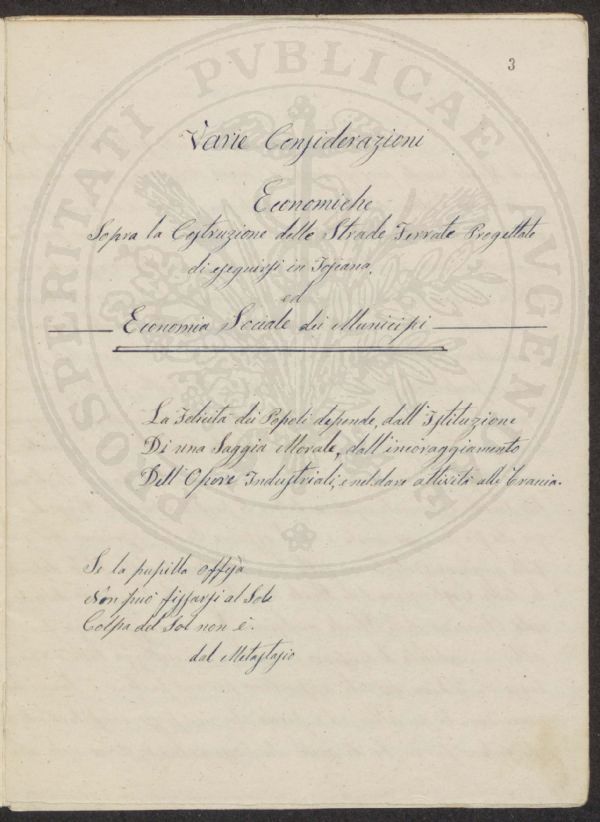 3
PROSPERITATI PVBLICAE AVGENDAE
Varie Considerazioni
Economiche
Sopra la Costruzione delle Strade Ferrate Progettate
di eseguirsi in Toscana.
ed
Economia Sociale dei Municipi
La Felicità dei Popoli depende, dall'Istituzione
Di una Saggia Morale, dall'incoraggiamento
Dell'Opere Industriali, e nel dare attività alle
Se la pupilla offesa
Non può fissarsi al Sole
Colpa del Sol non è.
dal Metastasio